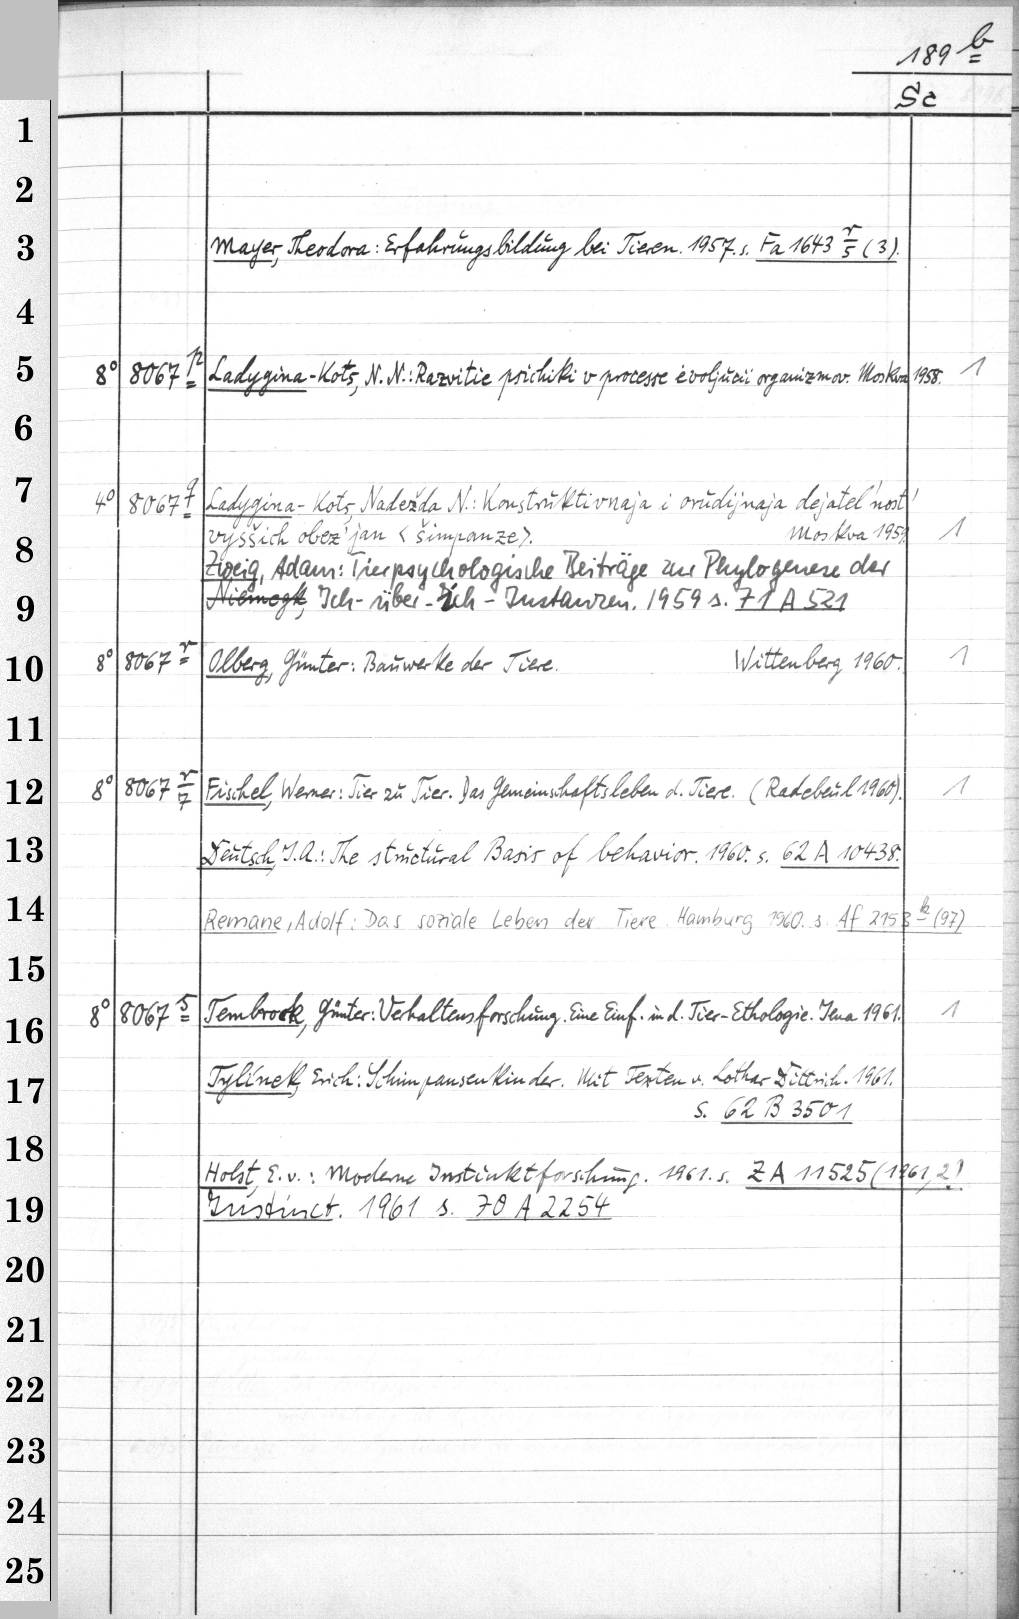 189 b
Sc
1
2
3 Mayer, Theodora: Erfahrungsbildung bei Tieren. 1957. s. Fa 1643 r/5 (3).
4
5 8° 8067 p Ladygina-Kots, N. N.: Razvitie psichiki v processe ėvoljucii organizmov. Moskva 1958. 1
6
7 4° 8067 q Ladygina-Kots, Nadežda N.: Konstruktivnaja i orudijnaja dejatel'nost'
8 vyšsich obez'jan <šimpanze>. Moskva 1959. 1
Zweig, Adam: Tierpsychologische Beiträge zur Phylogenese der
9 Niemegk, Ich-über-Ich-Instanzen. 1959 s. 71 A 521
10 8° 8067 r Olberg, Günter: Bauwerke der Tiere. Wittenberg 1960. 1
11
12 8° 8067 r/7 Fischel, Werner: Tier zu Tier. Das Gemeinschaftsleben d. Tiere. (Radebeul 1960). 1
13 Deutsch, J.A.: The structural Basis of behavior. 1960. s. 62 A 10438.
14 Remane, Adolf: Das soziale Leben der Tiere. Hamburg 1960. s. Af 2153 b (97)
15
16 8° 8067 s Tembrock, Günter: Verhaltensforschung. Eine Einf. in d. Tier-Ethologie. Jena 1961. 1
17 Tylínek, Erich: Schimpansenkinder. Mit Texten v. Lothar Dittrich. 1961.
s. 62 B 3501
18 Holst, E. v.: Moderne Instinktforschung. 1961. s. ZA 11525 (1961,2)
19 Instinct. 1961 s. 70 A 2254
20
21
22
23
24
25